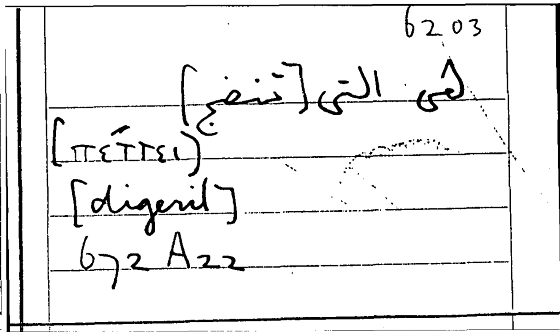 6203
هى التى [تنضج]
[πέττει)
[digerit]
672 A22